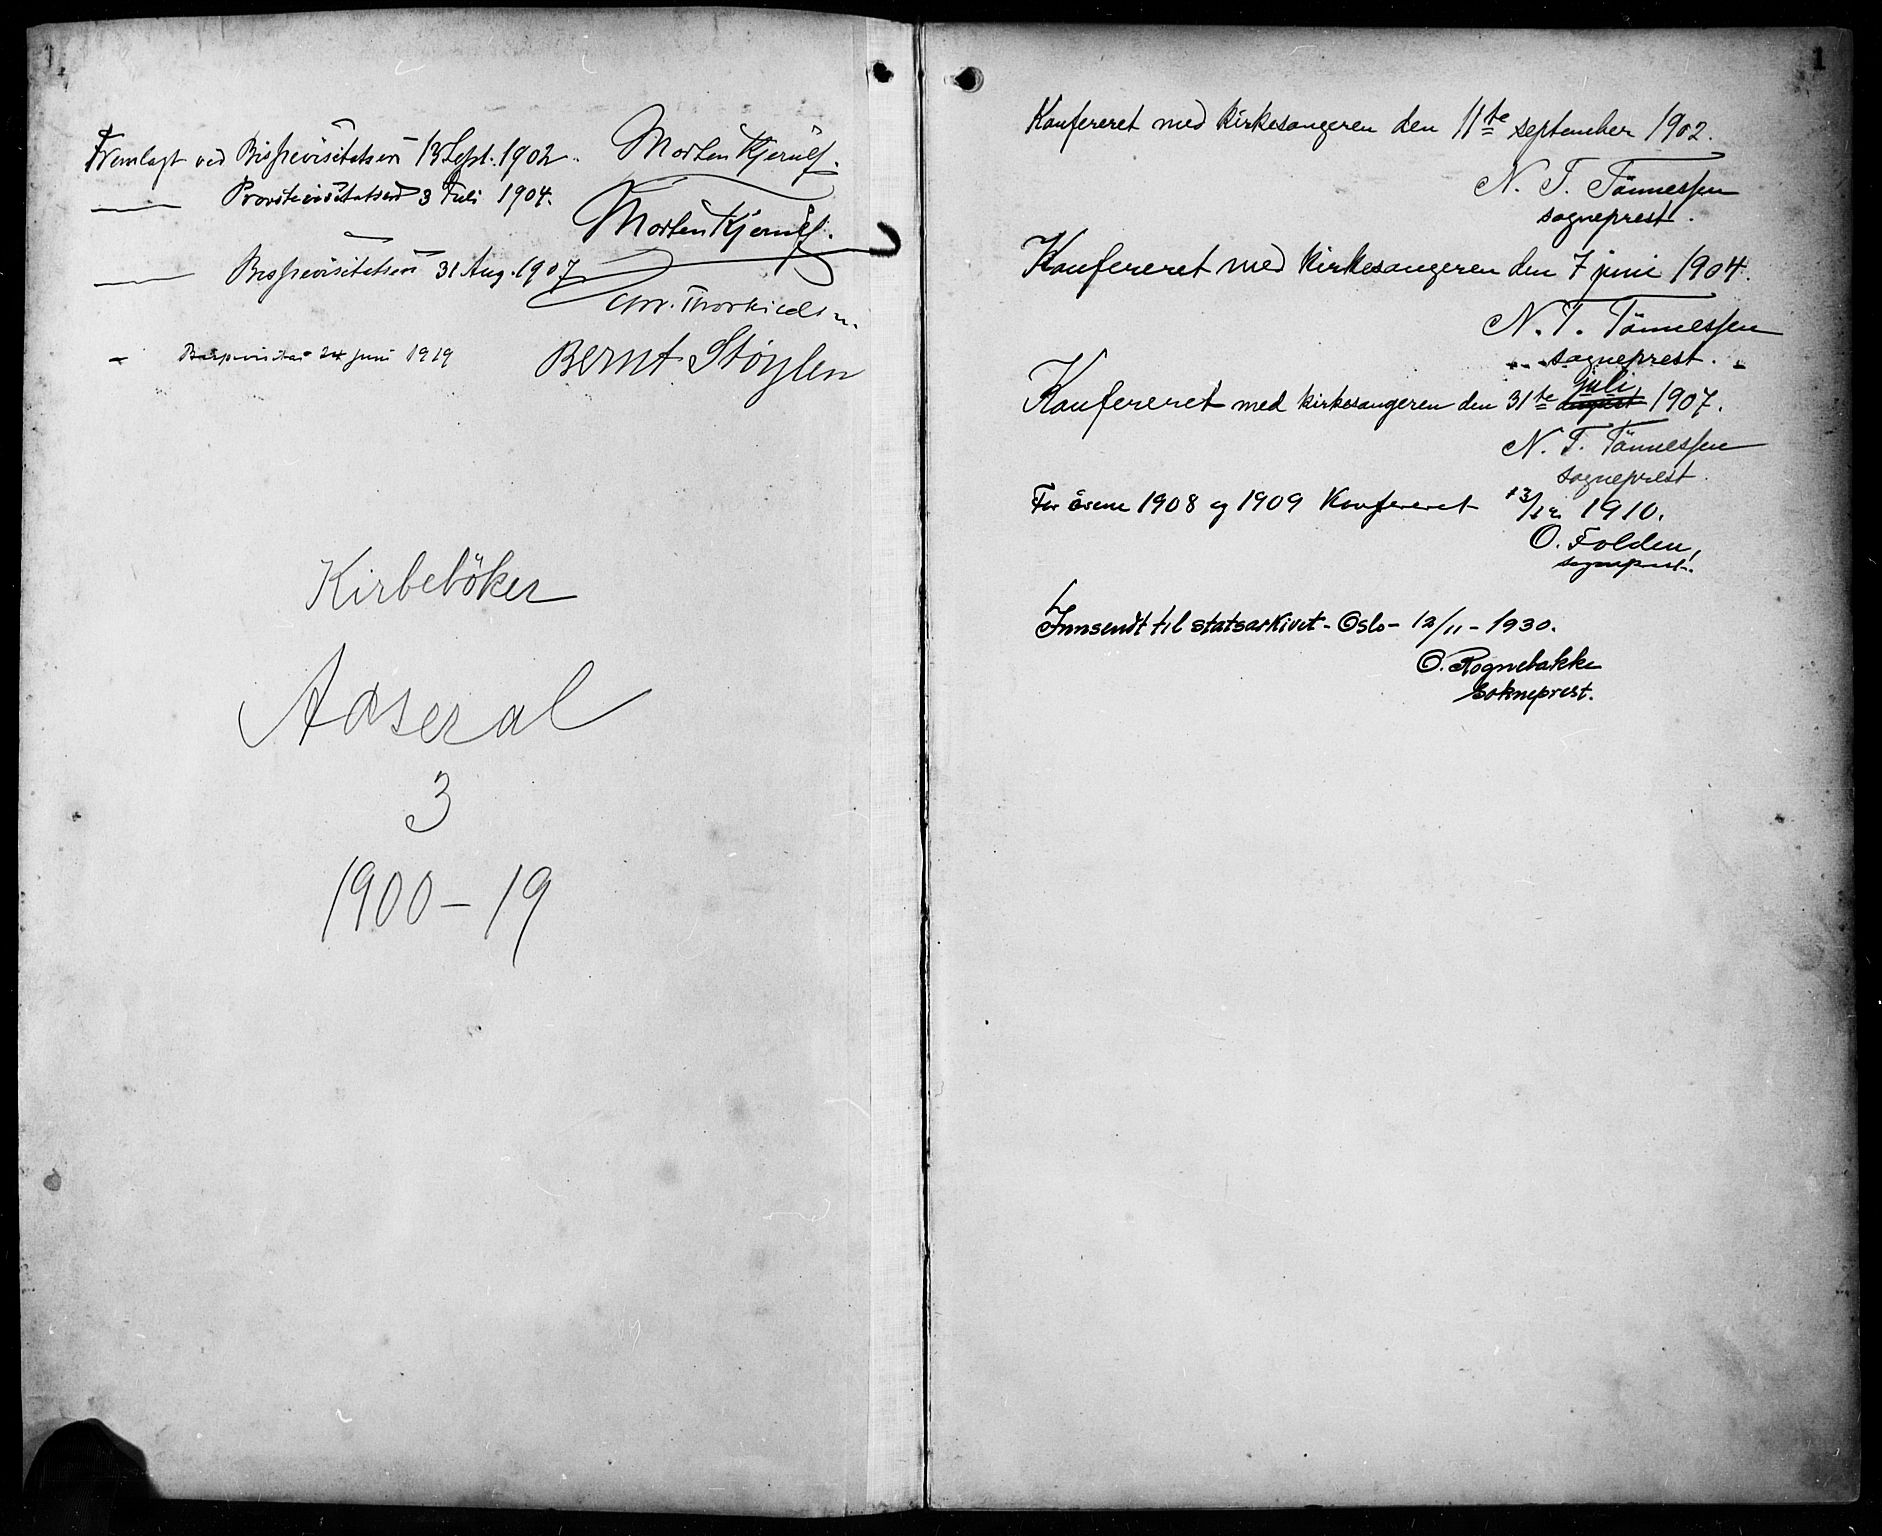 1.
Fremlagt ved Bispevisitatsen 13 Sept. 1902. Morten Kjerulf.
— Provstevisitatsen 3 Juli 1904. Morten Kjerulf.
— Bispevisitatsen 31 Aug. 1907 Chr. Thorkildsen.
- Bispevisitas 24 juni 1919 Bernt Støylen
Kirkebøker
Aaseral
3
1900-19
1
Konfereret med kirkesangeren den 11te september 1902.
N. T. Tönnessen
sogneprest.
Konfereret med kirkesangeren den 7 juni 1904.
N. T. Tönnessen
sogneprest.
juli
Konfereret med kirkesangeren den 31te august 1907.
N. T. Tönnessen
sogneprest.
For årene 1908 og 1909 Konfereret 13/12 1910.
O. Folden,
sogneprest.
Innsendt til statsarkivet - Oslo - 12/11 - 1930.
O. Rognebakke
Sokneprest.